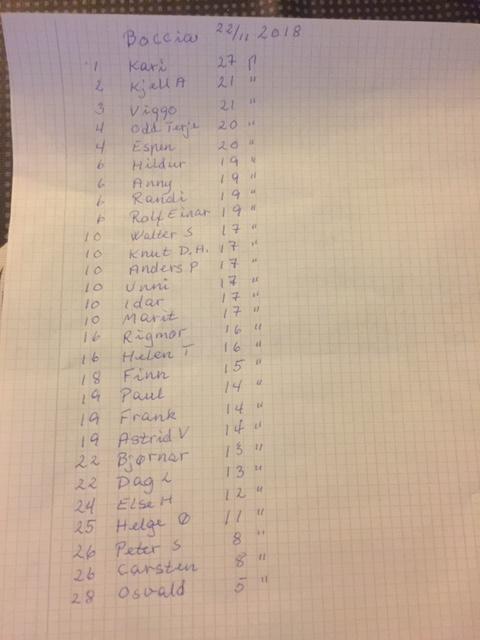 Boccia 22/11 2018
1 Kari 27 p
2 Kjell A 21 "
3 Viggo 21 "
4 Odd Terje 20 "
4 Espen 20 "
6 Hildur 19 "
6 Anny 19 "
6 Randi 19 "
6 Rolf Einar 19 "
10 Walter S 17 "
10 Knut D.A. 17 "
10 Anders P 17 "
10 Unni 17 "
10 Idar 17 "
10 Marit 17 "
16 Rigmor 16 "
16 Helen T 16 "
18 Finn 15 "
19 Paul 14 "
19 Frank 14 "
19 Astrid V 14 "
22 Bjørnar 13 "
22 Dag L 13 "
24 Else H 12 "
25 Helge Ø 11 "
26 Peter S 8 "
26 Carsten 8 "
28 Osvald 5 "